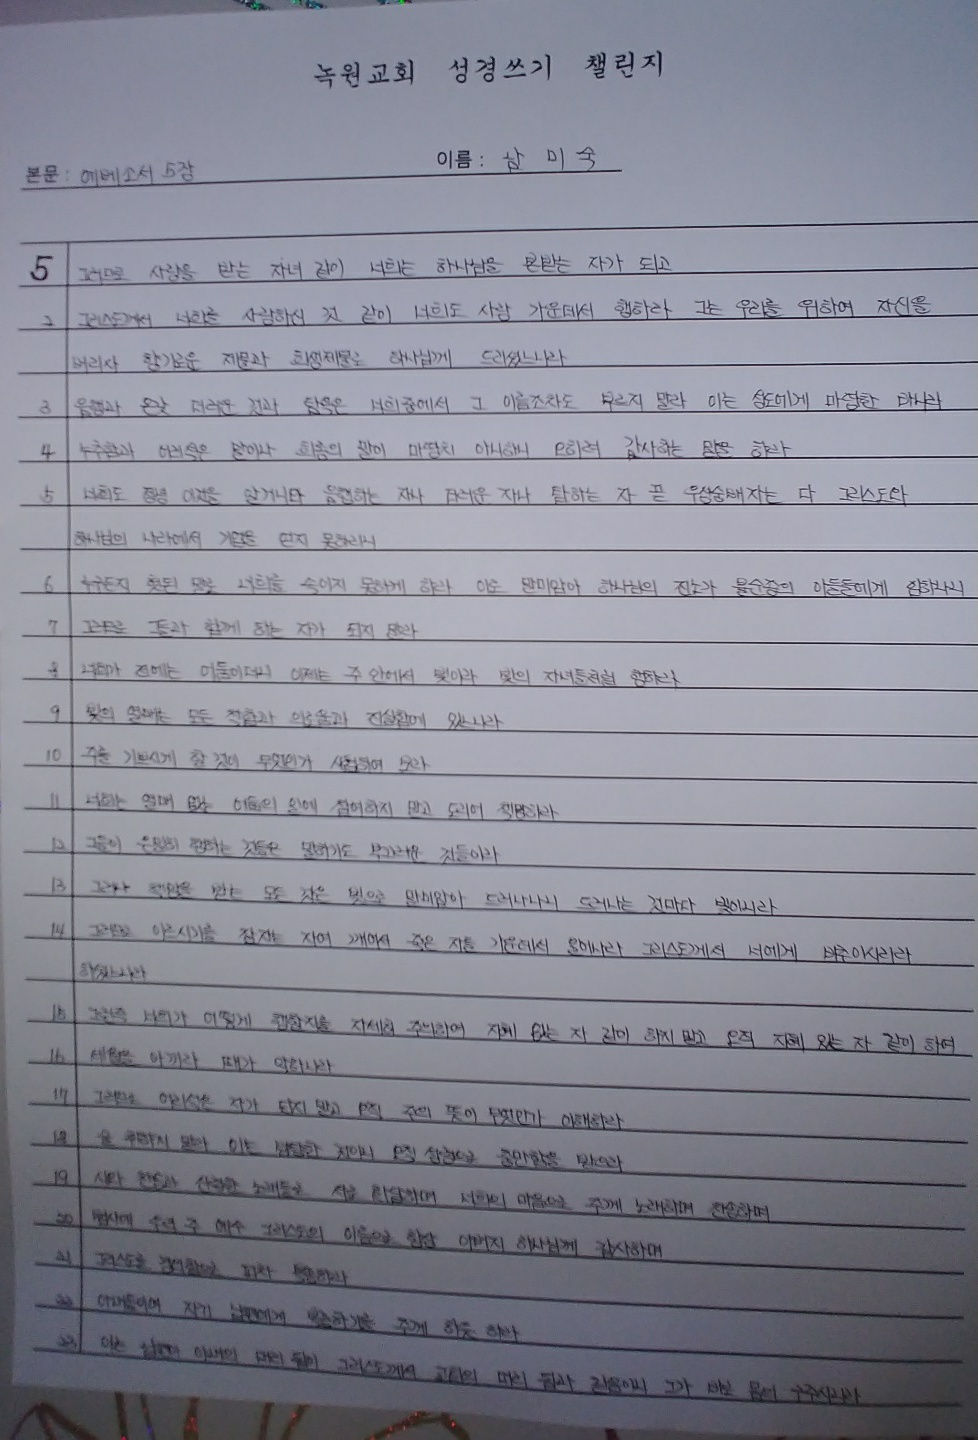 녹원교회 성경쓰기 챌린지
본문: 에베소서 5장 이름: 함 미 숙
5 그러므로 사랑을 받는 자녀 같이 너희는 하나님을 본받는 자가 되고
2 그리스도께서 너희를 사랑하신 것 같이 너희도 사랑 가운데서 행하라 그는 우리를 위하여 자신을
버리사 향기로운 제물과 희생제물로 하나님께 드리셨느니라
3 음행과 온갖 더러운 것과 탐욕은 너희중에서 그 이름조차도 부르지 말라 이는 성도에게 마땅한 바니라
4 누추함과 어리석은 말이나 희롱의 말이 마땅치 아니하니 오히려 감사하는 말을 하라
5 너희도 정녕 이것을 알거니와 음행하는 자나 더러운 자나 탐하는 자 곧 우상숭배자는 다 그리스도와
하나님의 나라에서 기업을 얻지 못하리니
6 누구든지 헛된 말로 너희를 속이지 못하게 하라 이로 말미암아 하나님의 진노가 불순종의 아들들에게 임하나니
7 그러므로 그들과 함께 하는 자가 되지 말라
8 너희가 전에는 어둠이더니 이제는 주 안에서 빛이라 빛의 자녀들처럼 행하라
9 빛의 열매는 모든 착함과 의로움과 진실함에 있느니라
10 주를 기쁘시게 할 것이 무엇인가 시험하여 보라
11 너희는 열매 없는 어둠의 일에 참여하지 말고 도리어 책망하라
12 그들이 은밀히 행하는 것들은 말하기도 부끄러운 것들이라
13 그러나 책망을 받는 모든 것은 빛으로 말미암아 드러나나니 드러나는 것마다 빛이니라
14 그러므로 이르시기를 잠자는 자여 깨어서 죽은 자들 가운데서 일어나라 그리스도께서 너에게 비추이시리라
하셨느니라
15 그런즉 너희가 어떻게 행할지를 자세히 주의하여 지혜 없는 자 같이 하지 말고 오직 지혜 있는 자 같이 하여
16 세월을 아끼라 때가 악하니라
17 그러므로 어리석은 자가 되지 말고 오직 주의 뜻이 무엇인가 이해하라
18 술 취하지 말라 이는 방탕한 것이니 오직 성령으로 충만함을 받으라
19 시와 찬송과 신령한 노래들로 서로 화답하며 너희의 마음으로 주께 노래하며 찬송하며
20 범사에 우리 주 예수 그리스도의 이름으로 항상 아버지 하나님께 감사하며
21 그리스도를 경외함으로 피차 복종하라
22 아내들이여 자기 남편에게 복종하기를 주께 하듯 하라
23 이는 남편이 아내의 머리 됨이 그리스도께서 교회의 머리 됨과 같음이니 그가 바로 몸의 구주시니라